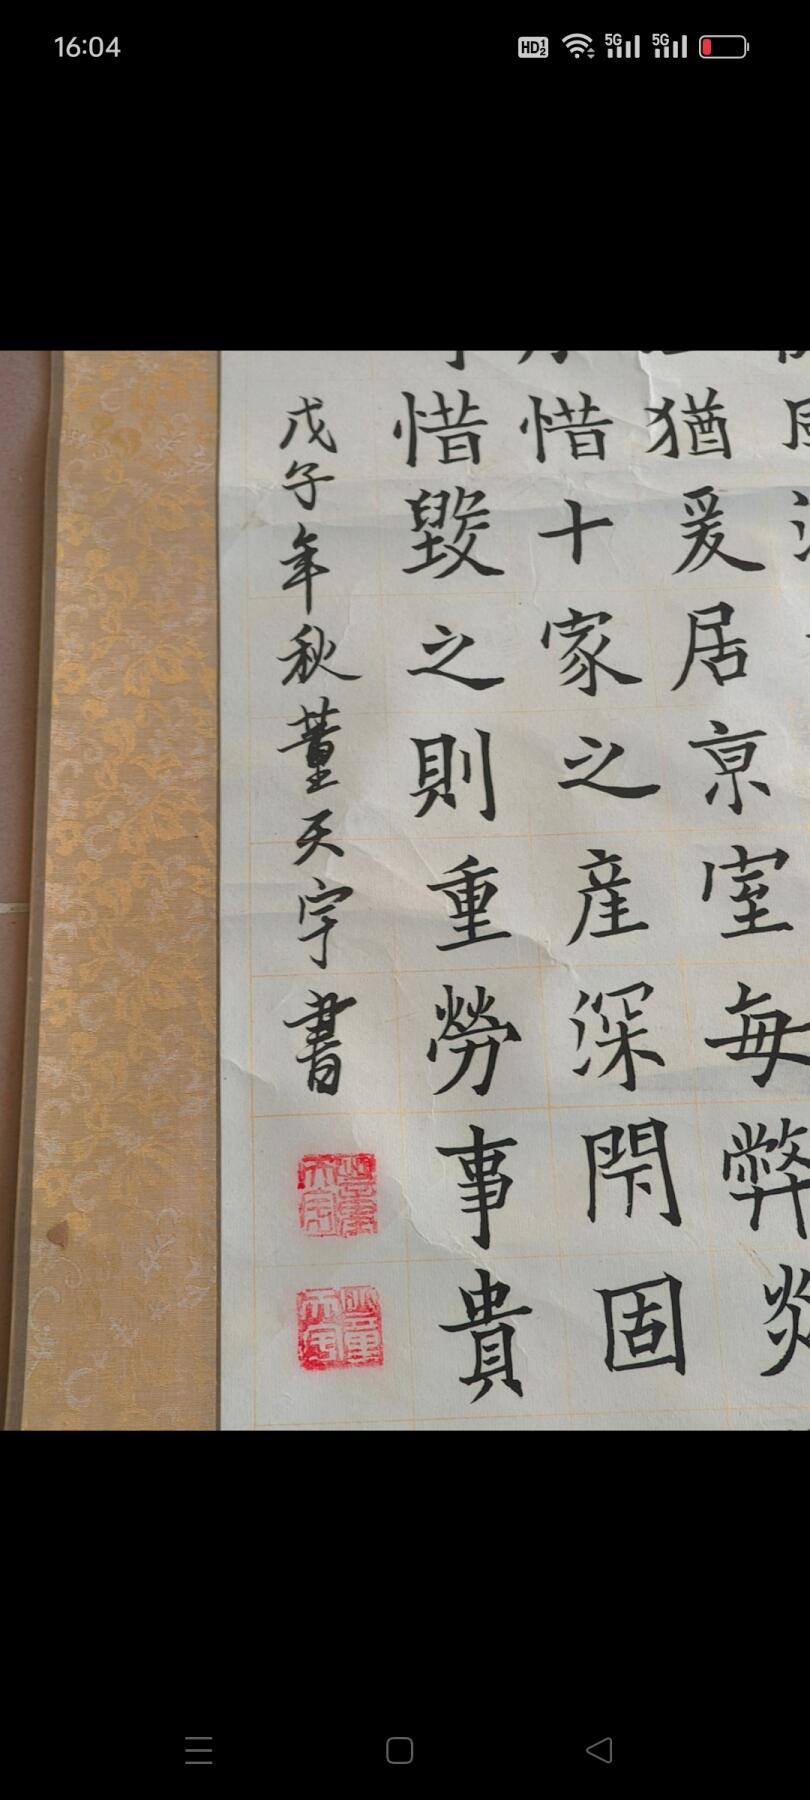 16:04
HD 5G 5G
猶爰居亰室每弊炎
惜十家之産深閇固
惜毀之則重勞事貴
戊子年秋董天宇書